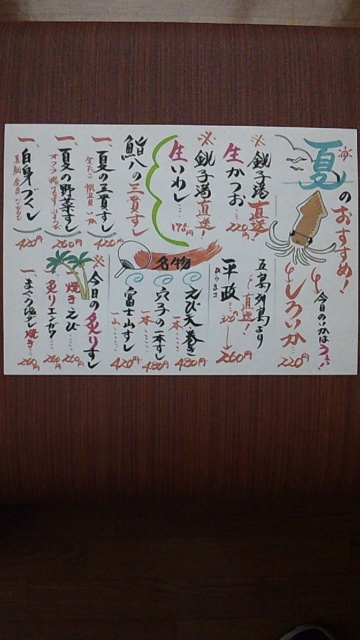 夏のおすすめ!
今日のいかはうまい!!
しろいか
220円
※銚子港直送!
生かつお‥220円
※銚子港直送!
生いわし‥175円
五島列島より
直送!
平政
ひらまさ
260円
鮨八の三貫すし
一、夏の三貫すし
420円
一、夏の野菜すし
260円
一、白身づくし
420円
名物
えび天巻き
一本‥480円
穴子の一本すし
一本‥480円
富士山すし
一山‥420円
※今日の炙りすし
一、焼きえび
260円
一、炙りエンガワ
260円
一、まぐろ塩タレ焼き‥
260円